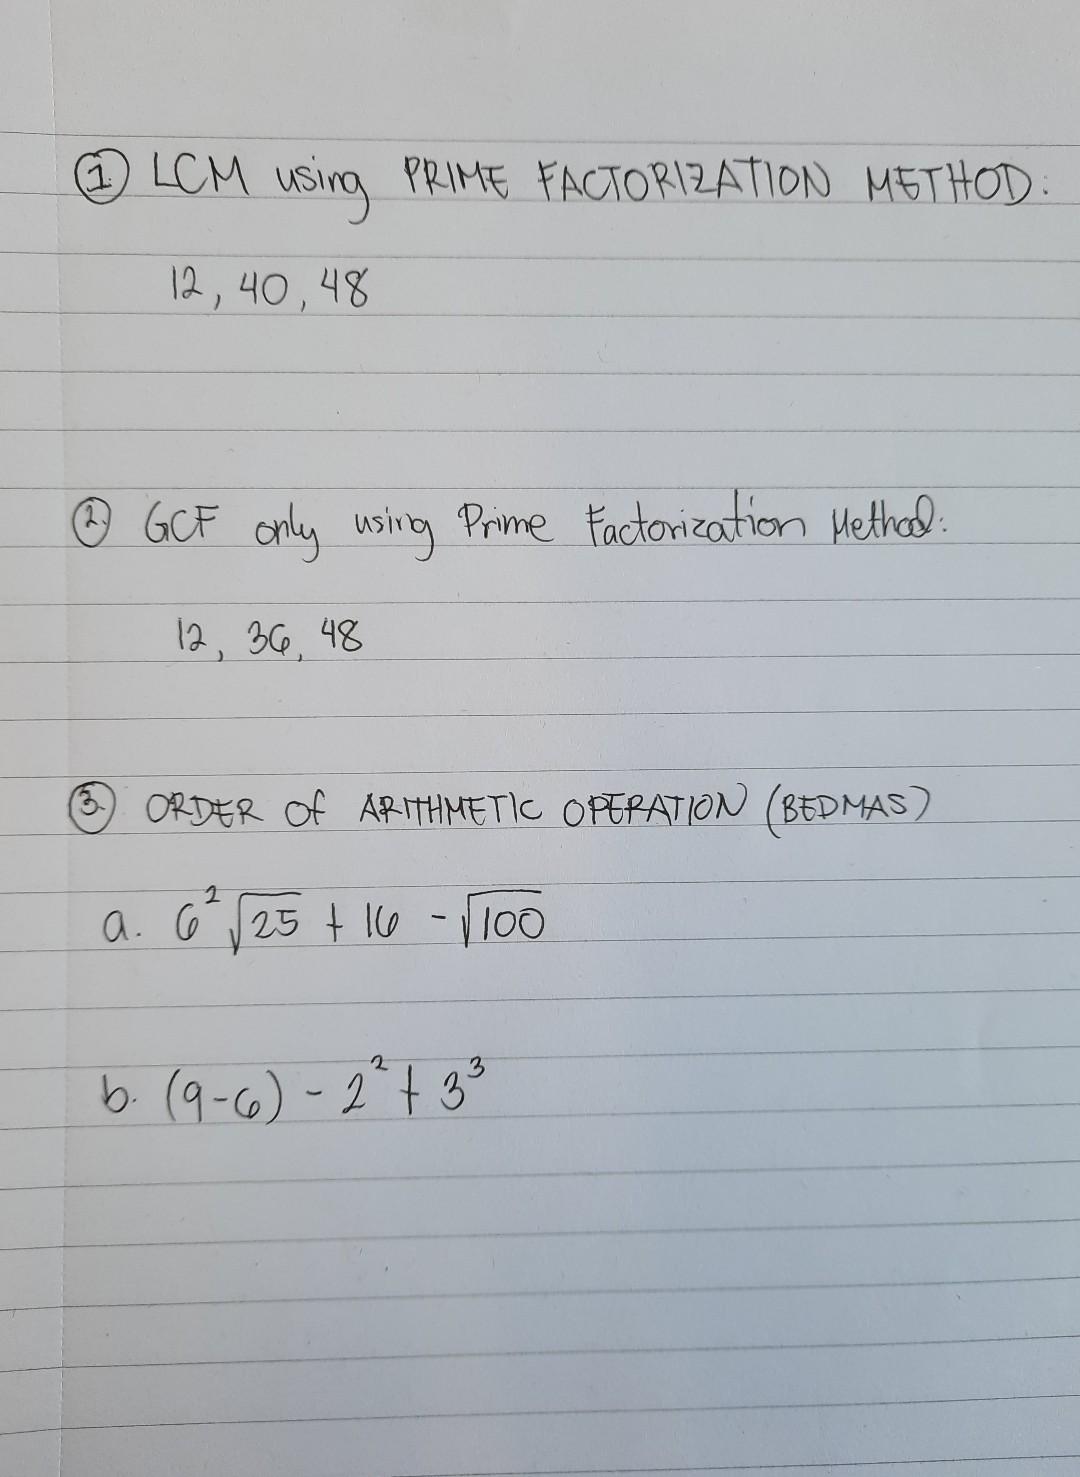 ① LCM using PRIME FACTORIZATION METHOD:
12, 40, 48
② GCF only using Prime Factorization Method:
12, 36, 48
③ ORDER of ARITHMETIC OPERATION (BEDMAS)
a. 6² √25 + 16 - √100
b. (9-6) - 2² + 3³